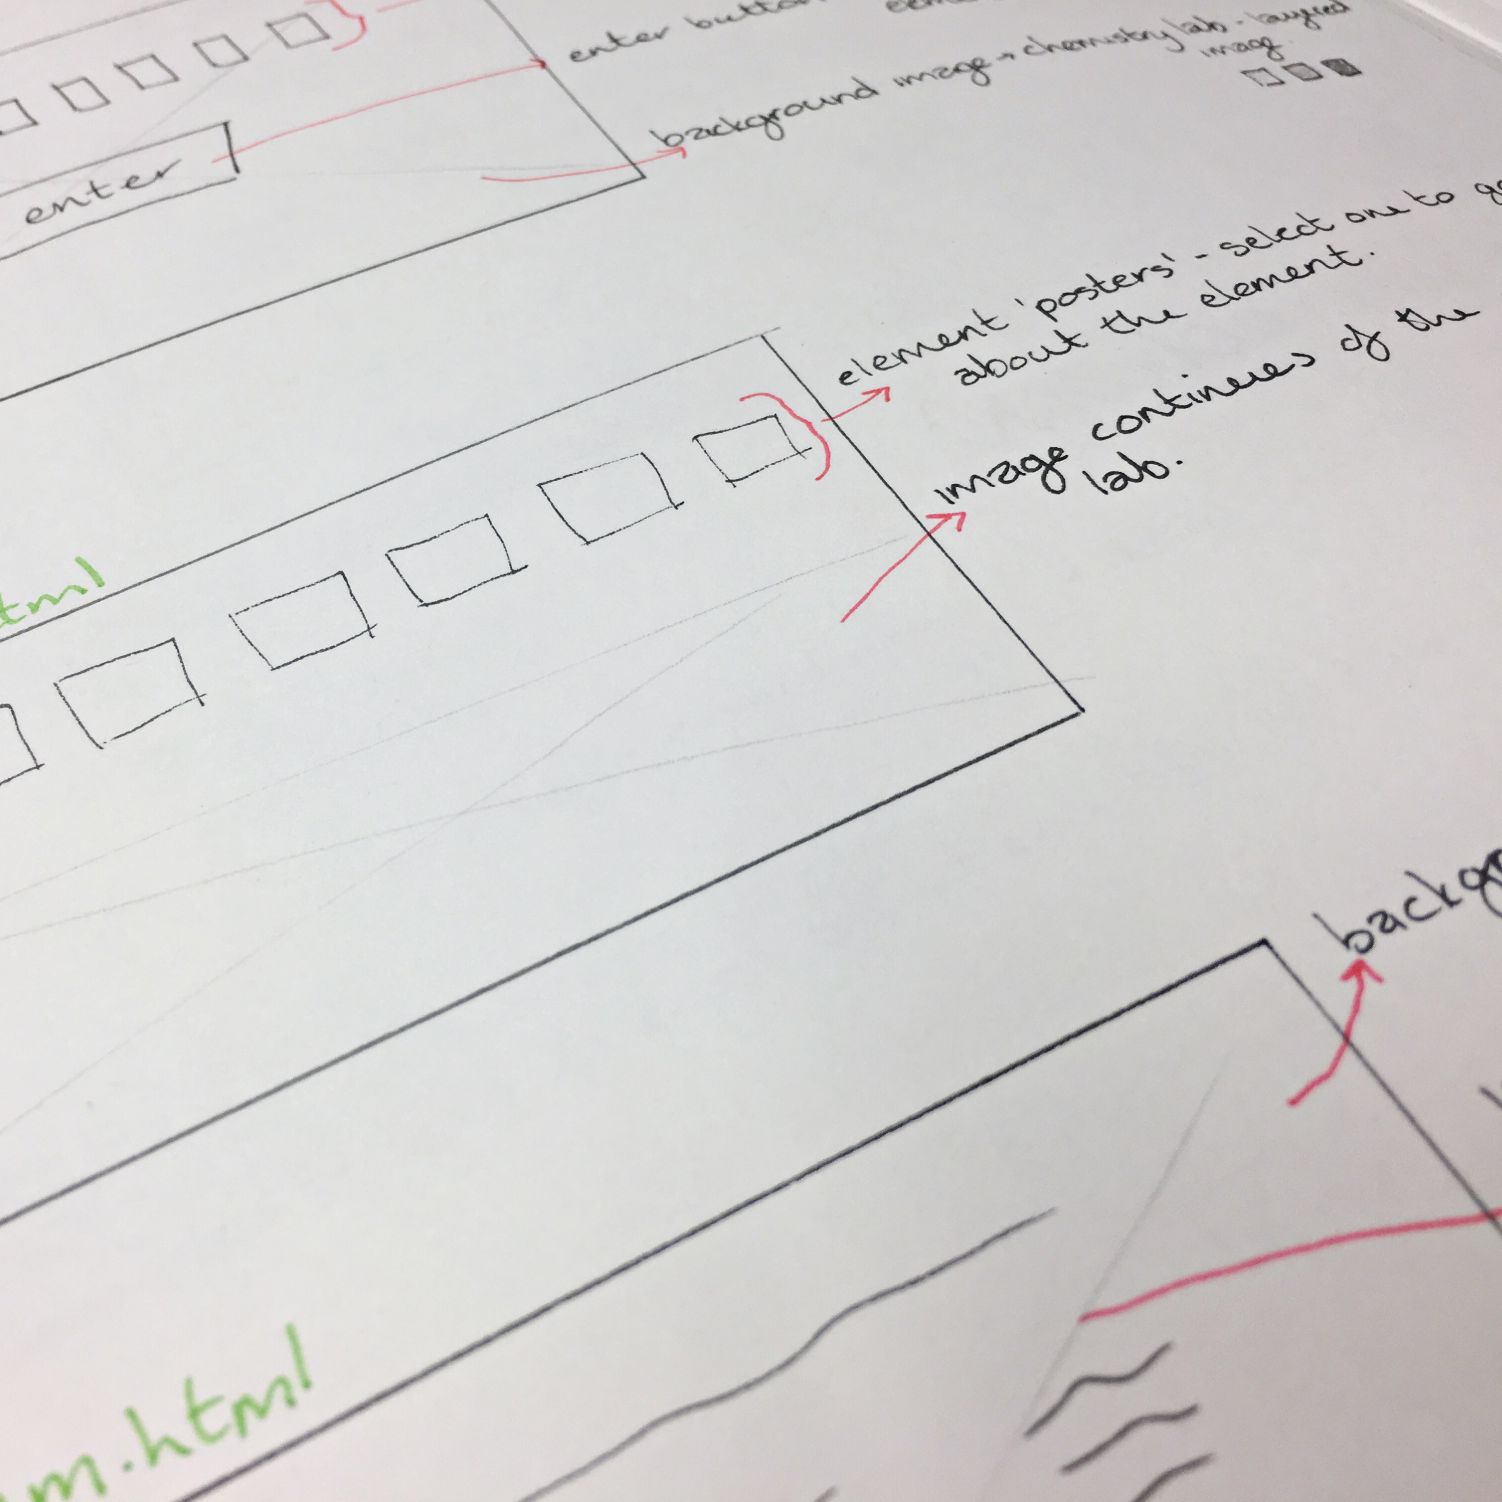 enter button
background image → chemistry lab - layered
image
enter
element 'posters' - select one to
about the element.
image continues of the
lab.
tml
backgr
m.html